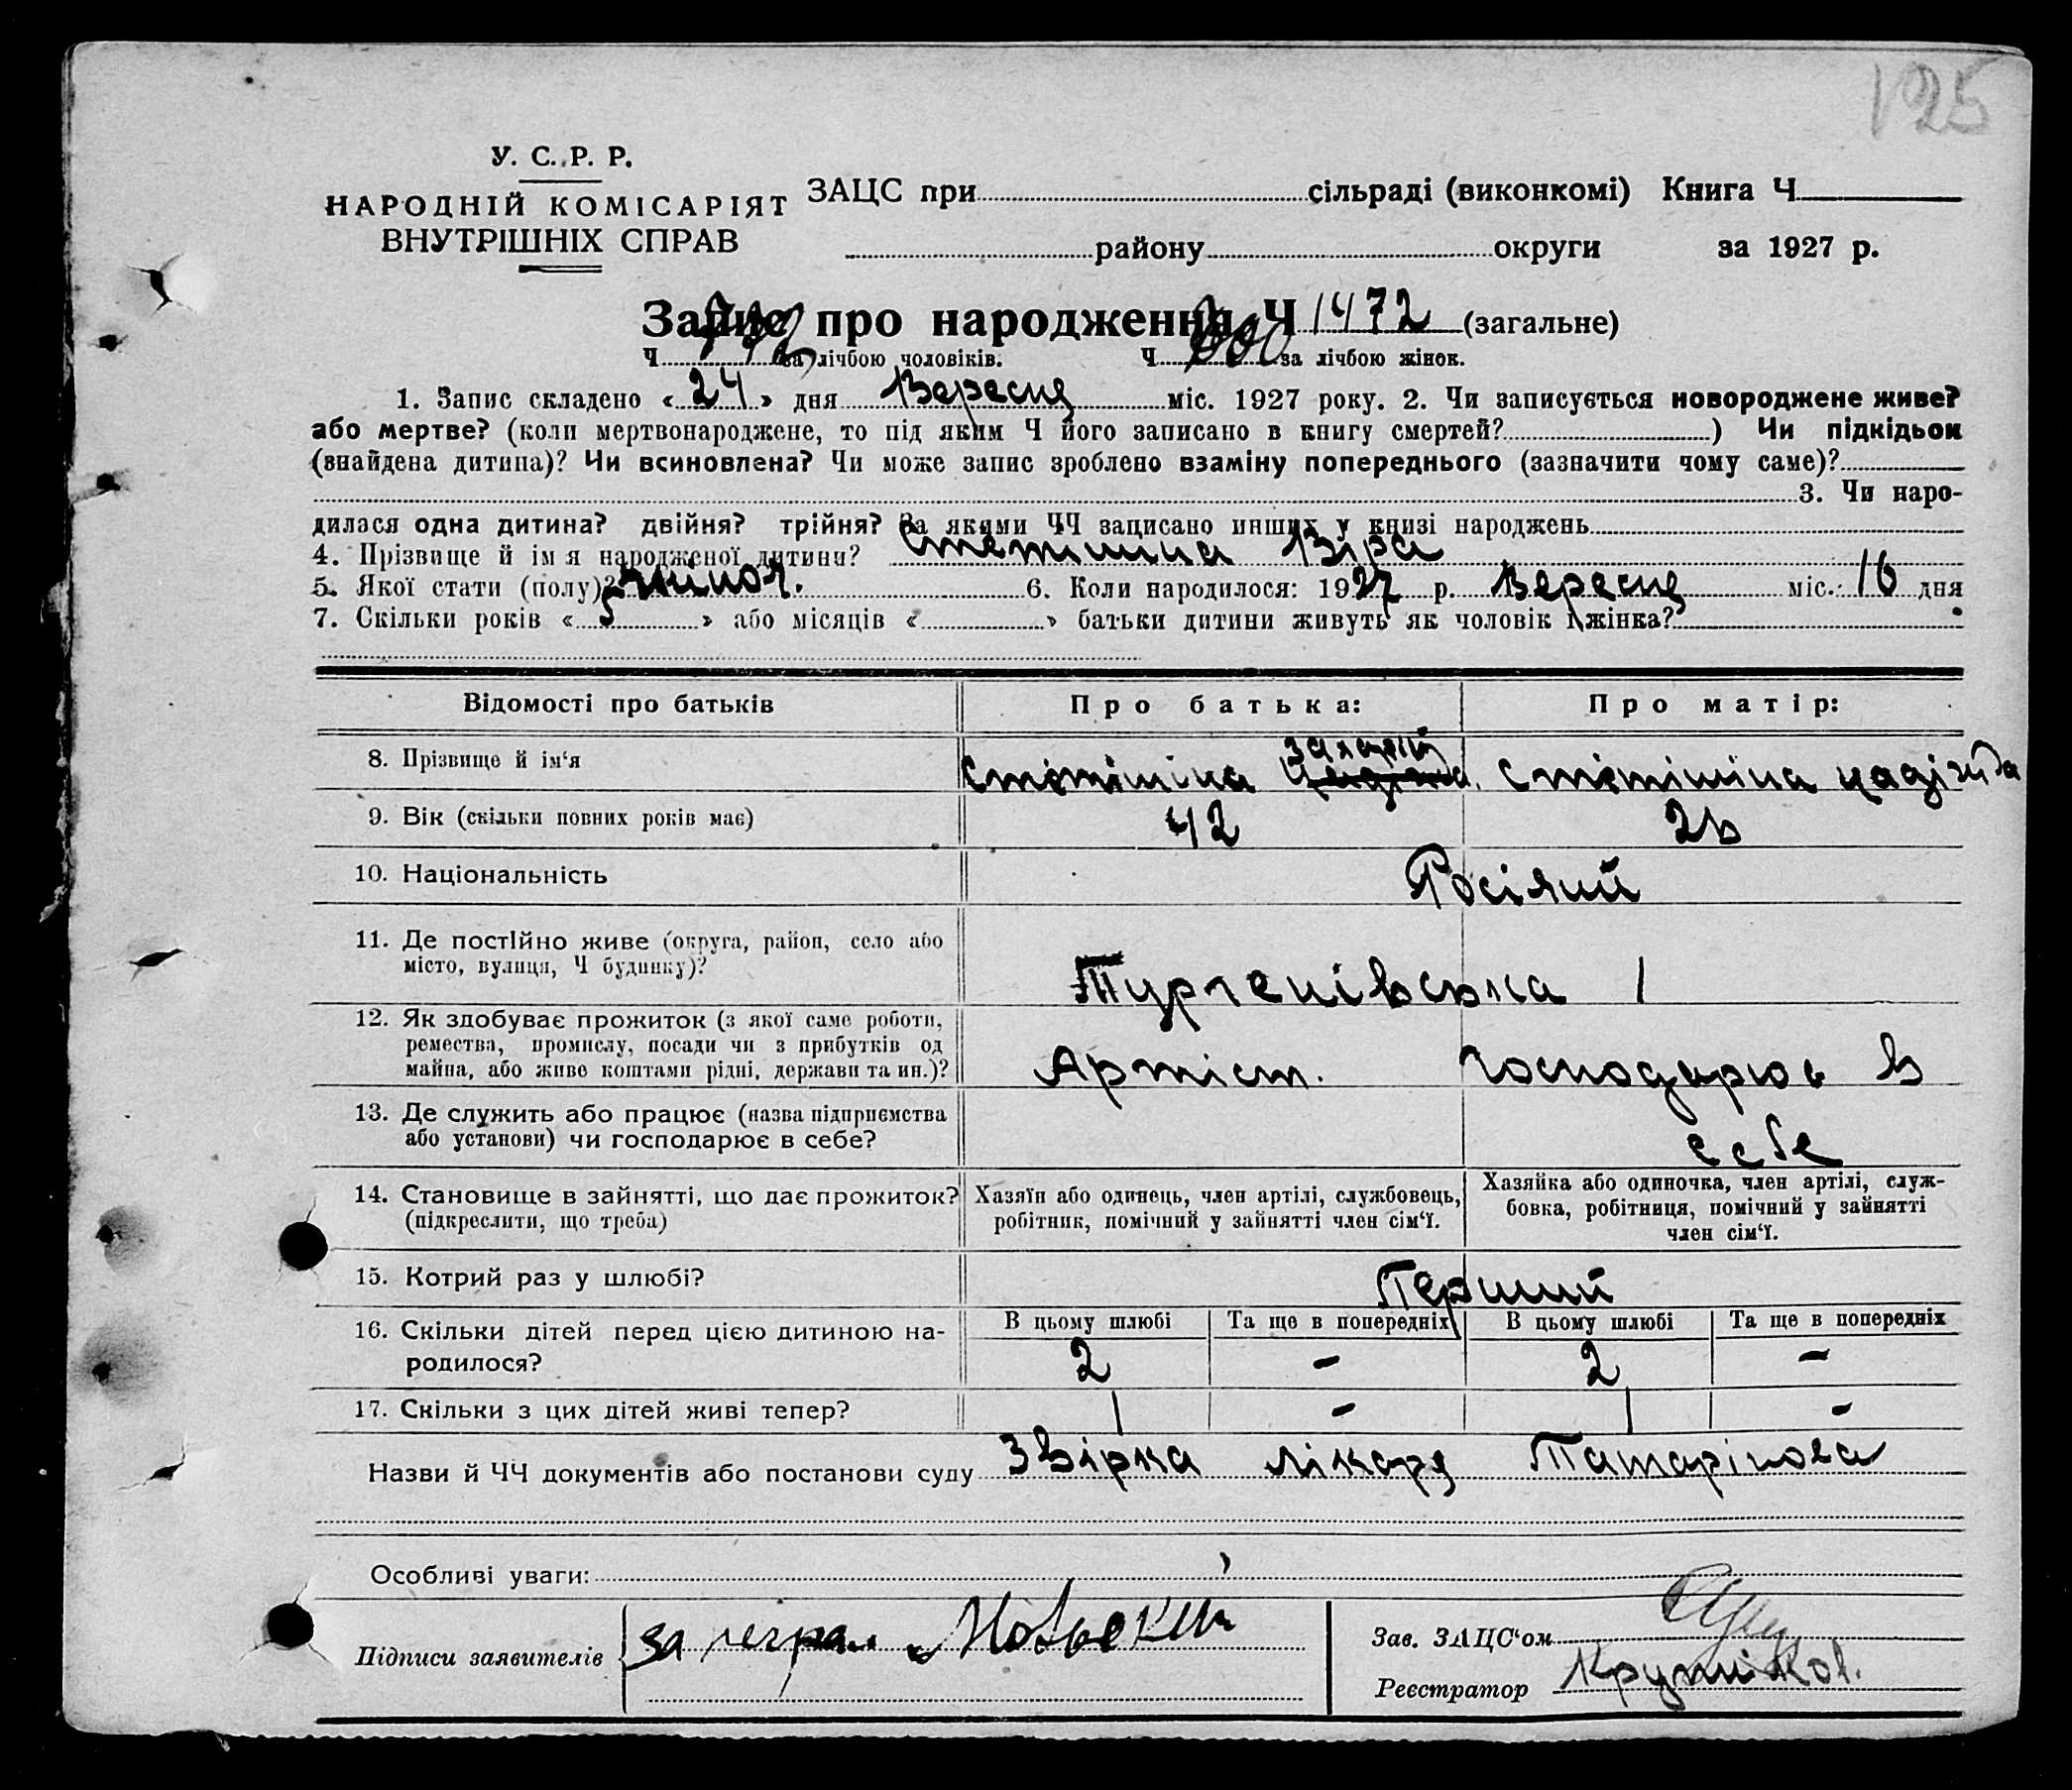 125
У. С. Р. Р.
НАРОДНІЙ КОМІСАРІЯТ
ВНУТРІШНІХ СПРАВ
ЗАЦС при сільраді (виконкомі) Книга Ч
району округи за 1927 р.
Запис про народження Ч 1472 (загальне)
Ч за лічбою чоловіків. Ч за лічбою жінок.
1. Запис складено « 24 » дня Вересня міс. 1927 року. 2. Чи записується новороджене живе?
або мертве? (коли мертвонароджене, то під яким Ч його записано в книгу смертей? ) Чи підкідьок
(знайдена дитина)? Чи всиновлена? Чи може запис зроблено взаміну попереднього (зазначити чому саме)?
3. Чи наро-
дилася одна дитина? двійня? трійня? За якими ЧЧ записано инших у книзі народжень
4. Прізвище й ім я народженої дитини? Стетишина Віра
5. Якої стати (полу)? жіноч. 6. Коли народилося: 1927 р. Вересня міс. 16 дня
7. Скільки років « 5 » або місяців « » батьки дитини живуть як чоловік і жінка?
Відомості про батьків Про батька: Про матір:
8. Прізвище й ім'я
Стетішіна Стетішіна Надіжда
9. Вік (скільки повних років має) 42
10. Національність Росіяний
11. Де постійно живе (округа, район, село або
місто, вулиця, Ч будинку)?
Тургенівська 1
12. Як здобуває прожиток (з якої саме роботи,
ремества, промислу, посади чи з прибутків од
майна, або живе коштами рідні, держави та ин.)?
Артіст. господарює в
13. Де служить або працює (назва підприємства
або установи) чи господарює в себе?
себе
14. Становище в зайнятті, що дає прожиток?
(підкреслити, що треба)
Хазяїн або одинець, член артілі, службовець,
робітник, помічний у зайнятті член сім'ї.
Хазяйка або одиночка, член артілі, служ-
бовка, робітниця, помічний у зайнятті
член сім'ї.
15. Котрий раз у шлюбі? Перший
16. Скільки дітей перед цією дитиною на-
родилося?
В цьому шлюбі Та ще в попередніх В цьому шлюбі Та ще в попередніх
2 - 2 -
17. Скільки з цих дітей живі тепер? 1 - 1 -
Назви й ЧЧ документів або постанови суду Звірка лікаря Татарінова
Особливі уваги:
Підписи заявителів
Зав. ЗАЦС'ом
Реєстратор